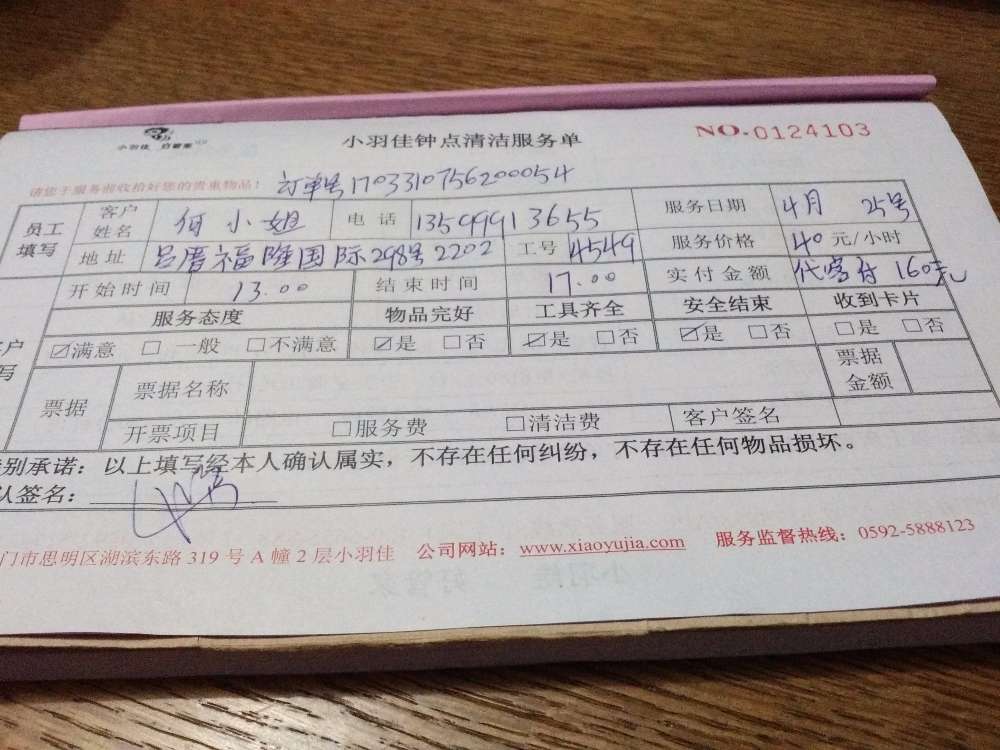 小羽佳 好管家
小羽佳钟点清洁服务单
NO.0124103
请您于服务前收拾好您的贵重物品！ 订单号1703310756200054
员工填写 客户姓名 何小姐 电话 13599913655 服务日期 4月 25号
地址 吕厝福隆国际298号2202 工号 4549 服务价格 40元/小时
开始时间 13.00 结束时间 17.00 实付金额 代客付 160元
服务态度 物品完好 工具齐全 安全结束 收到卡片
户 ☑满意 □ 一般 □不满意 ☑是 □否 ☑是 □否 ☑是 □否 □是 □否
写
票据 票据名称 票据金额
开票项目 □服务费 □清洁费 客户签名
别承诺：以上填写经本人确认属实，不存在任何纠纷，不存在任何物品损坏。
认签名：
门市思明区湖滨东路 319 号 A 幢 2 层小羽佳 公司网站：www.xiaoyujia.com 服务监督热线：0592-5888123